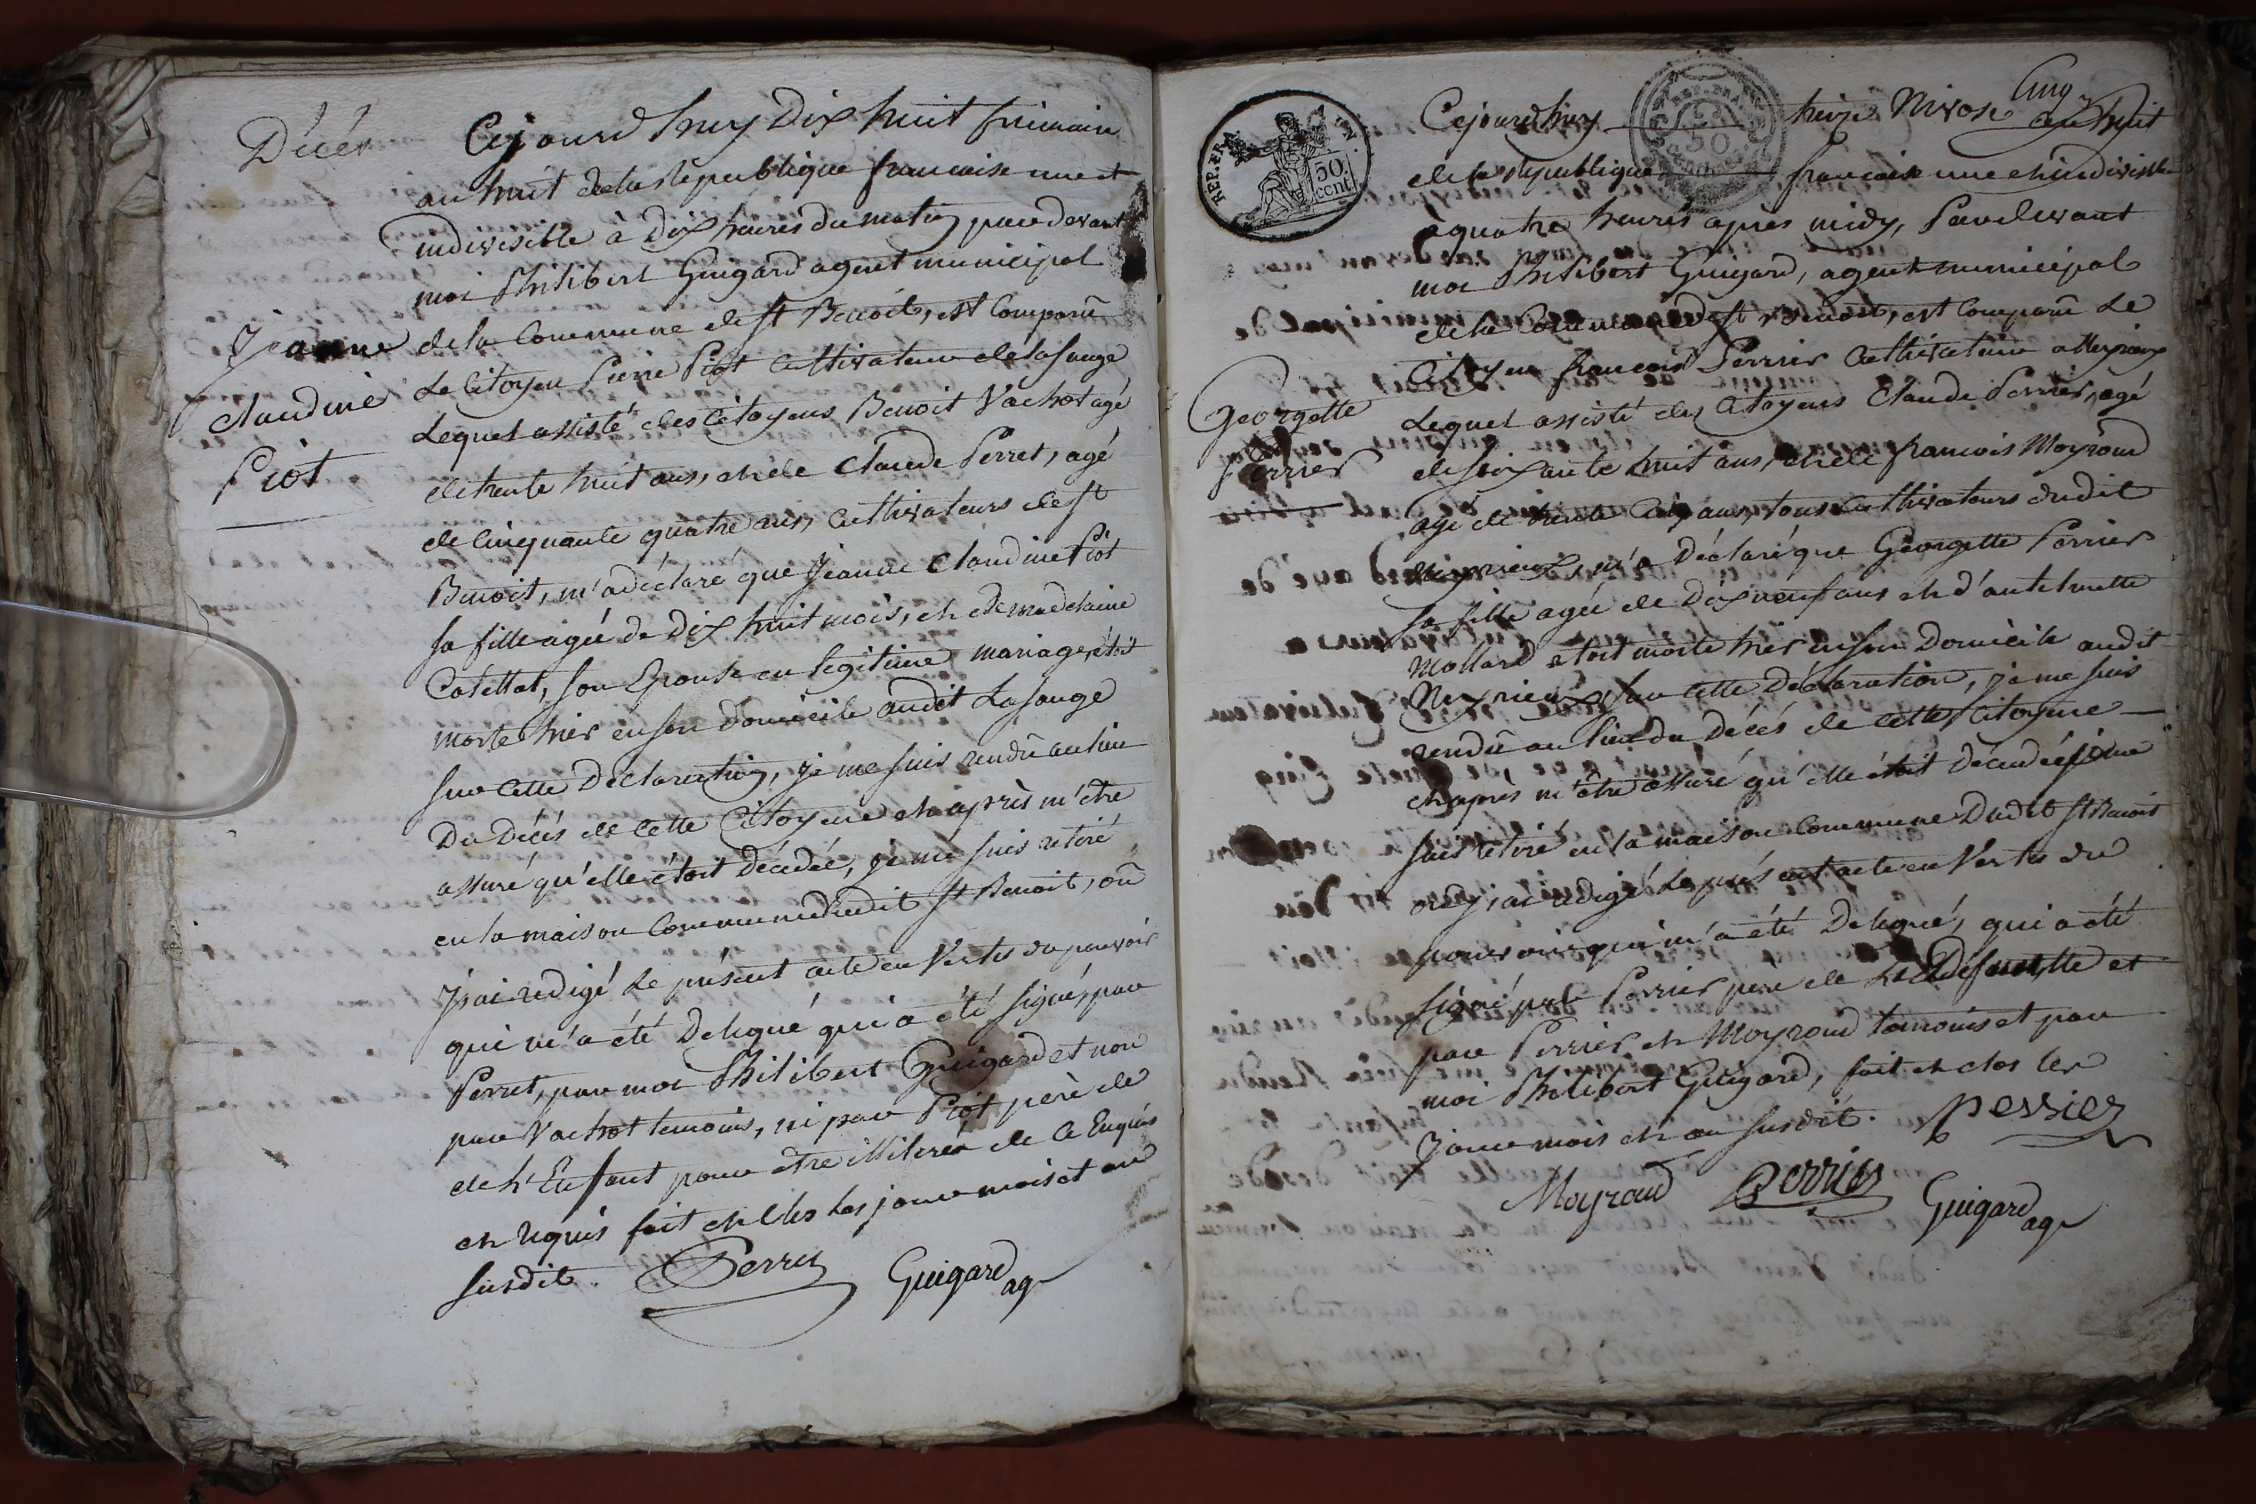 Décés
Cejourd'huy Dix huit frimaire
an huit de la République française une et
indivisible à Dix heures du matin pardevant
moi Philibert Guigard agent municipal
de la Commune de St Benoit, est Comparû
Jeanne
Claudine
Piot
Le Citoyen Pierre Piot Cultivateur de la Sauge
Lequel assisté des Citoyens Benoit Vachot agé
de trente huit ans, et de Claude Perret, agé
de Cinquante quatre ans, Cultivateurs de St
Benoit, m'a déclaré que Jeanne Claudine Piot
sa fille agée de Dix huit mois, et de madelaine
son Epouse en légitime mariage, étoit
morte hier en son domicile audit La Sauge
sur Cette Déclaration, je me suis rendû au lieu
Du Décés de Cette Citoyene et après m'être
assuré qu'elle étoit Décédée, je me suis retiré
en la maison Commune dudit St Benoit, où
J'ai redigé Le présent acte en Vertu du pouvoir
qui m'a été Delegué qui a été signé, par
Perret, par moi Philibert Guigard et non
par Vachot temoins, ni par Piot père de
de L'Enfant pour être illiteré de Ce Enquis
et requis fait et Clos Les jour mois et an
susdit.
Perret
Guigard ag
REP. FRA.
50 cent.
Cejourd'huy treize Nivose Cinq an huit
de la République française une et indivisible
a quatre heures après midy, Pardevant
moi Philibert Guigard, agent municipal
de la Commune de St Benoit, est Comparû Le
Georgette
Perrier
Citoyen françois Perrier Cultivateur a Meyrieux
Lequel assisté des Citoyens Claude Perrier, agé
de soixante huit ans, et de françois Moyroud
agé de trente Cinq ans, tous Cultivateurs dudit
Meyrieux, m'a Déclaré que Georgette Perrier
sa fille agée de Dix neuf ans et d'antelmette
Mollard étoit morte hier en son Domicile audit
Meyrieux, sur Cette Déclaration, je me suis
rendû au lieu du Décés de Cette Citoyene
et après m'être assuré qu'elle étoit décédée je me
suis retiré en la maison Commune Dudit St Benoit
où j'ai redigé Le présent acte en Vertu du
pouvoir qui m'a été Delegué, qui a été
signé par Perrier père de La Defunte et
par Perrier et Moyroud temoins et par
moi Philibert Guigard, fait et clos les
Jour mois et an susdit.
Perrier
Moyroud
Perrier
Guigard ag